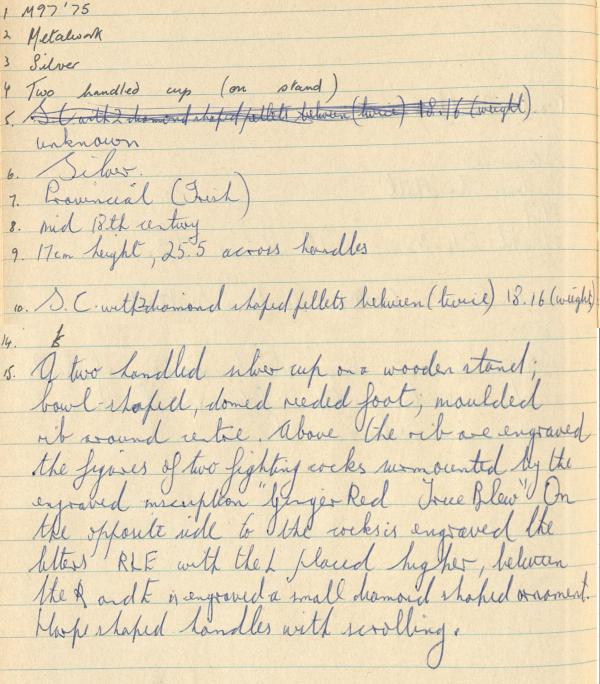 1 M97'75
2 Metalwork
3 Silver
4 Two handled cup (on stand)
5. S.C. with 2 diamond shaped pellets between (twice) 18.16 (weight).
unknown
6. Silver.
7. Provincial (Irish)
8. mid 18th century
9. 17cm height, 25.5 across handles
10. S.C. with 2 diamond shaped pellets between (twice) 18.16 (weight)
14.
15. A two handled silver cup on a wooden stand;
bowl-shaped, domed reeded foot; moulded
rib around centre. Above the rib are engraved
the figures of two fighting cocks surmounted by the
engraved inscription "Ginger Red True Blew". On
the opposite side to the cocks is engraved the
letters RLE with the L placed higher, between
the R and E is engraved a small diamond shaped ornament.
Harp shaped handles with scrolling.